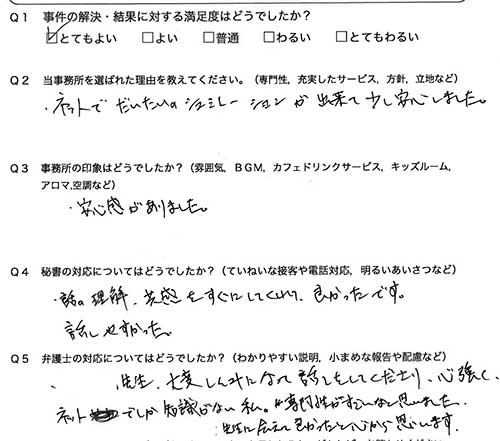 Q1 事件の解決・結果に対する満足度はどうでしたか？
☑とてもよい □よい □普通 □わるい □とてもわるい
Q2 当事務所を選ばれた理由を教えてください。（専門性，充実したサービス，方針，立地など）
・ネットでだいたいのシュミレーションが出来て少し安心しました。
Q3 事務所の印象はどうでしたか？（雰囲気，BGM，カフェドリンクサービス，キッズルーム，
アロマ,空調など）
・安心感がありました。
Q4 秘書の対応についてはどうでしたか？（ていねいな接客や電話対応，明るいあいさつなど）
・話の理解、共感をすぐにしてくれて、良かったです。
話しやすかった。
Q5 弁護士の対応についてはどうでしたか？（わかりやすい説明，小まめな報告や配慮など）
先生、大変しんみになって話をしてくださり、心強く、
ネットでしか知識がない私。専門性がすごいなと思いました。
先生に会えて良かったと心から思います。